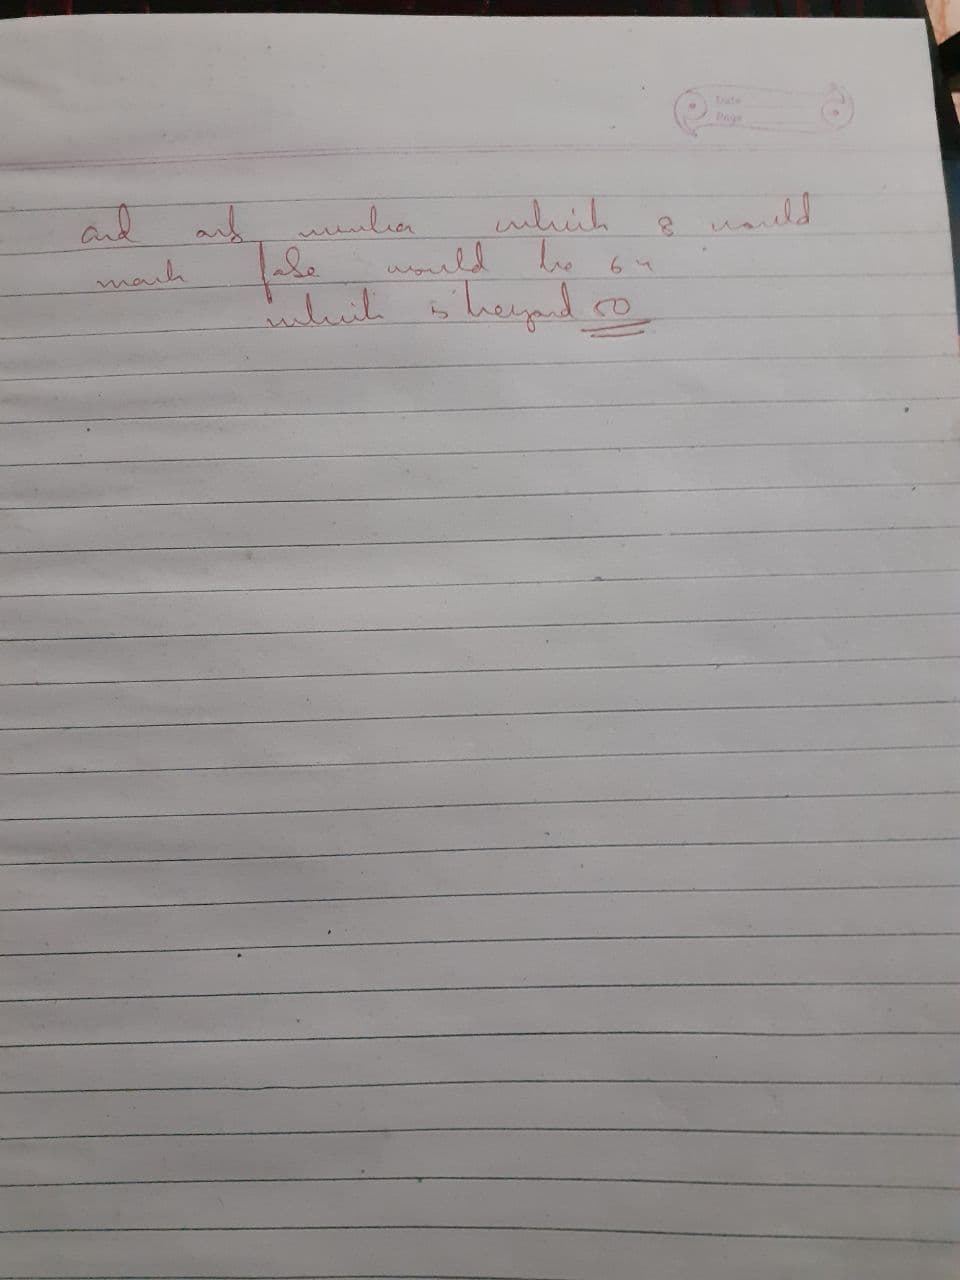 Date
Page
and any number which 8 would
mark false would be 64
which is beyond 50